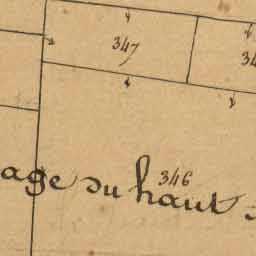 347
34
346
age du haut